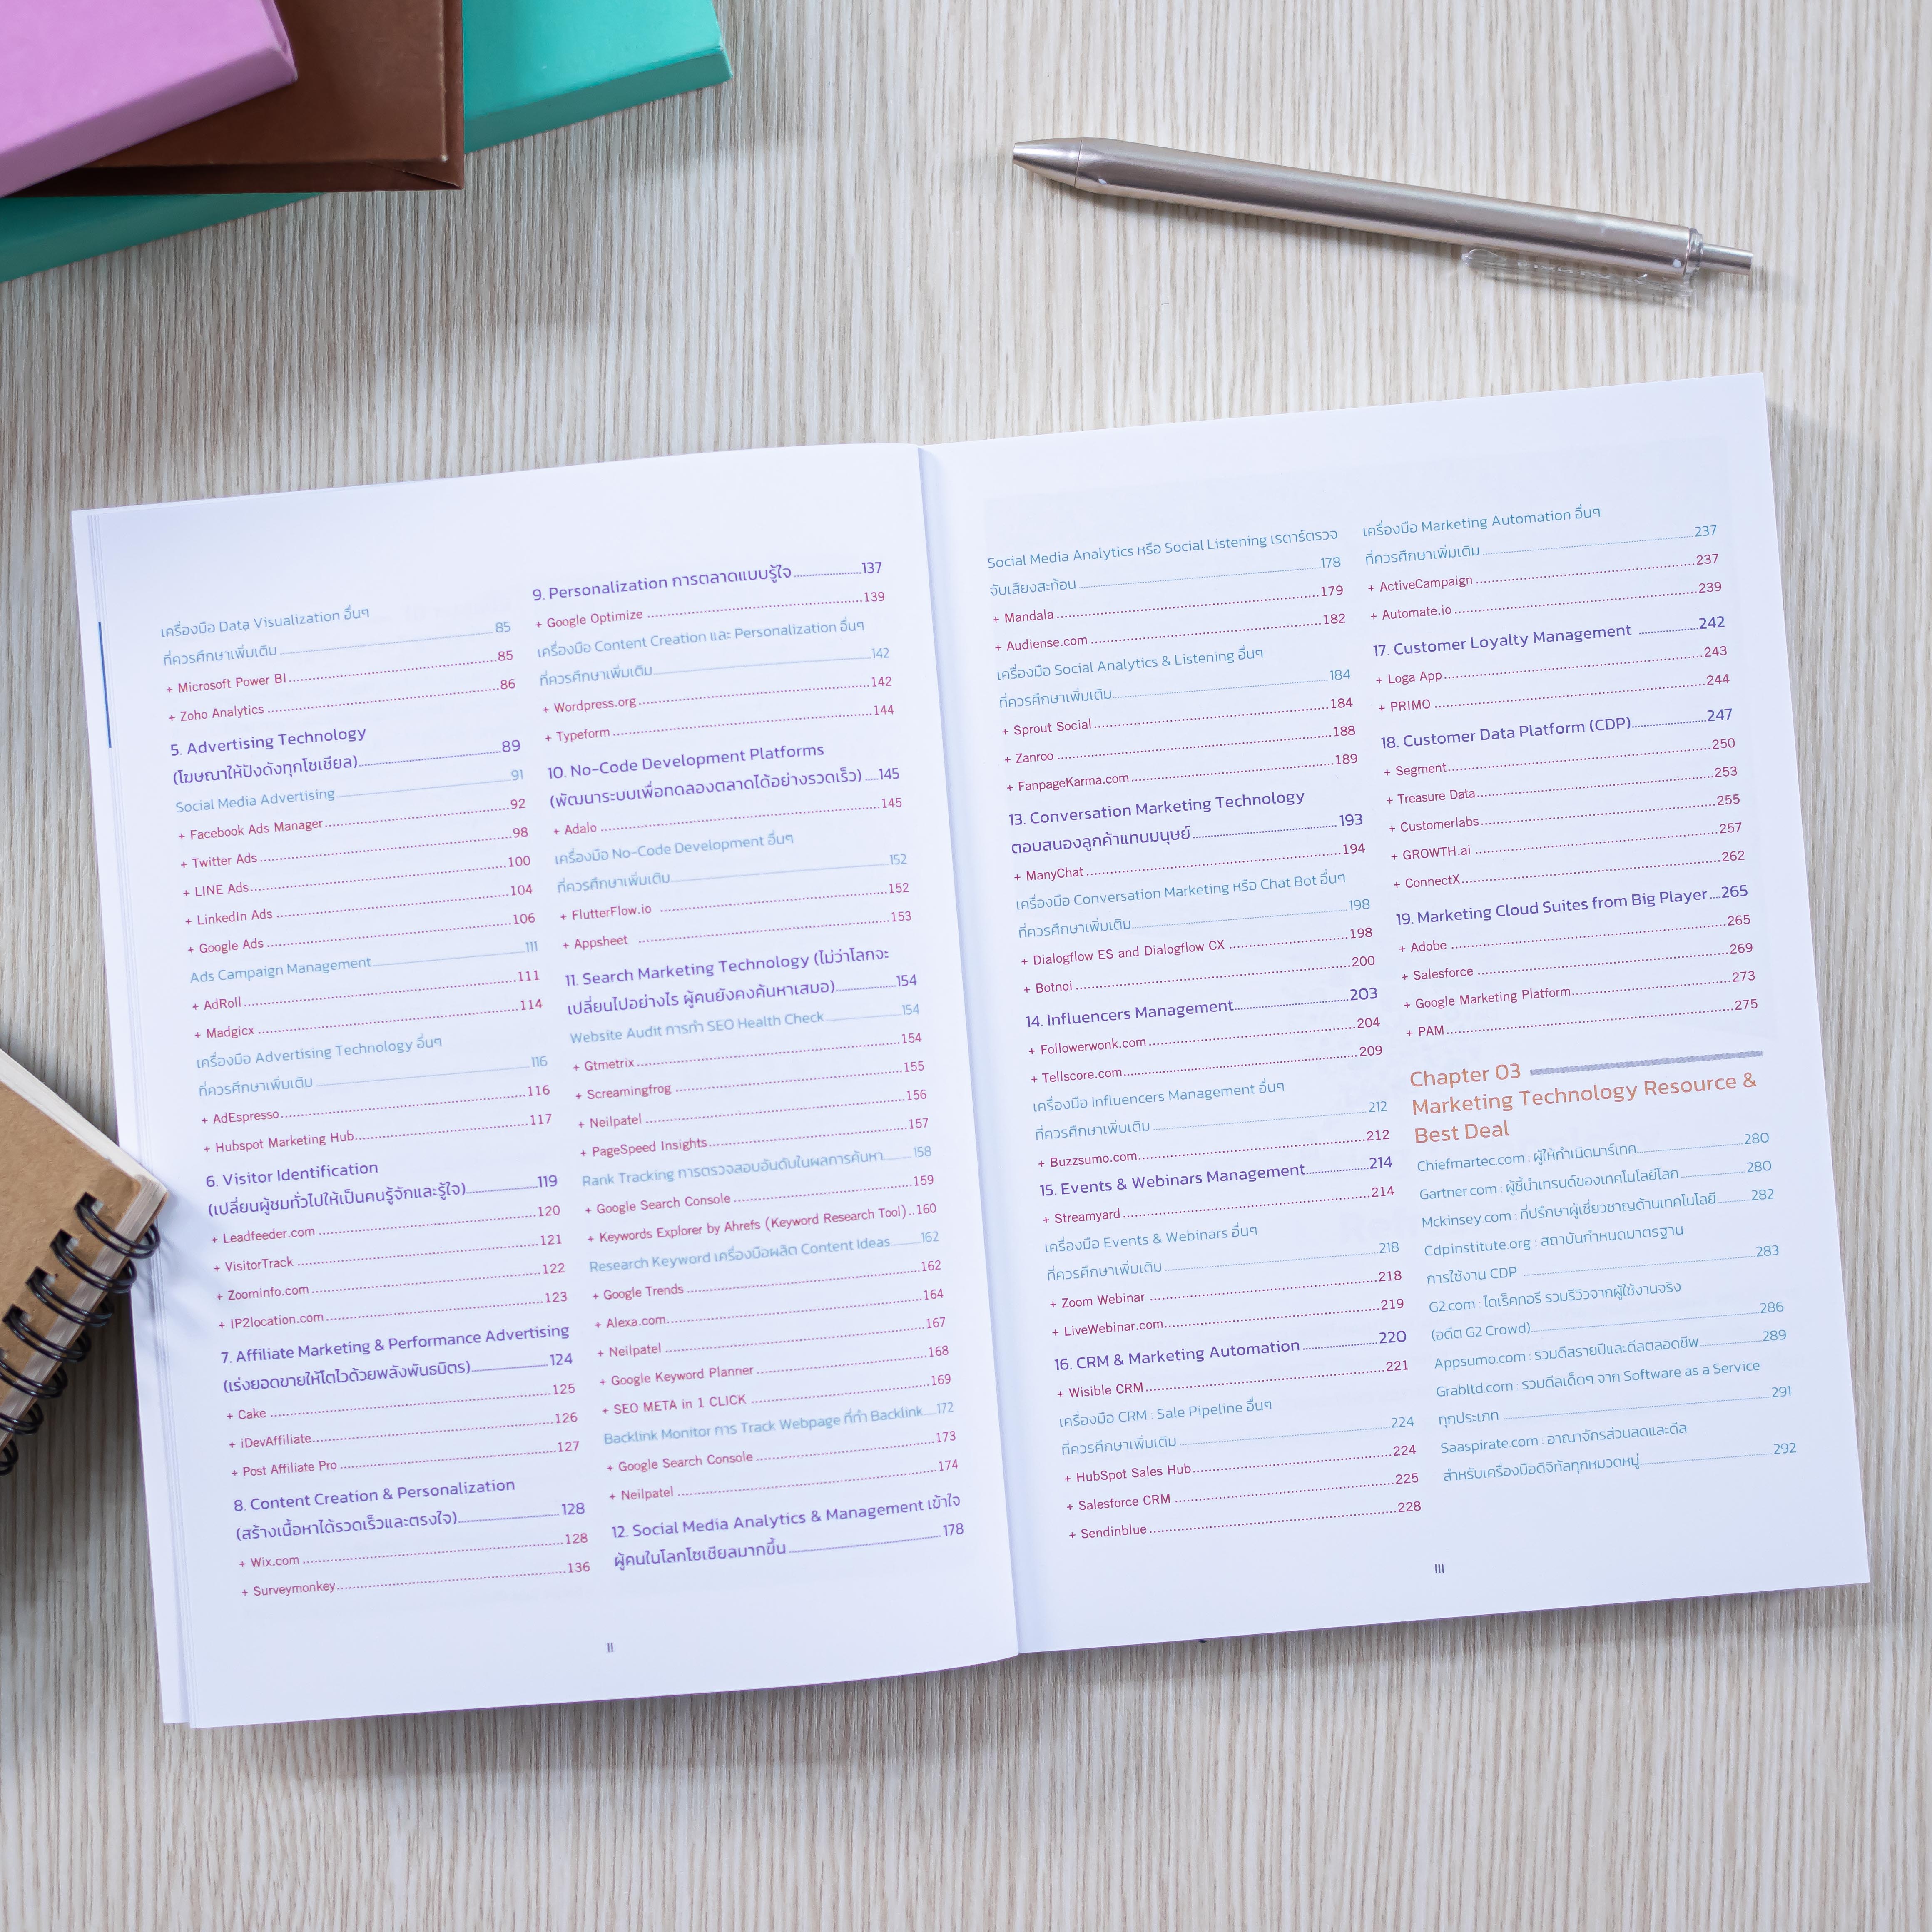 เครื่องมือ Data Visualization อื่นๆ
ที่ควรศึกษาเพิ่มเติม 85
+ Microsoft Power BI 85
+ Zoho Analytics 86
5. Advertising Technology
(โฆษณาให้ปังดังทุกโซเชียล) 89
Social Media Advertising 91
+ Facebook Ads Manager 92
+ Twitter Ads 98
+ LINE Ads 100
+ LinkedIn Ads 104
+ Google Ads 106
Ads Campaign Management 111
+ AdRoll 111
+ Madgicx 114
เครื่องมือ Advertising Technology อื่นๆ
ที่ควรศึกษาเพิ่มเติม 116
+ AdEspresso 116
+ Hubspot Marketing Hub 117
6. Visitor Identification
(เปลี่ยนผู้ชมทั่วไปให้เป็นคนรู้จักและรู้ใจ) 119
+ Leadfeeder.com 120
+ VisitorTrack 121
+ Zoominfo.com 122
+ IP2location.com 123
7. Affiliate Marketing & Performance Advertising
(เร่งยอดขายให้โตไวด้วยพลังพันธมิตร) 124
+ Cake 125
+ iDevAffiliate 126
+ Post Affiliate Pro 127
8. Content Creation & Personalization
(สร้างเนื้อหาได้รวดเร็วและตรงใจ) 128
+ Wix.com 128
+ Surveymonkey 136
9. Personalization การตลาดแบบรู้ใจ 137
+ Google Optimize 139
เครื่องมือ Content Creation และ Personalization อื่นๆ
ที่ควรศึกษาเพิ่มเติม 142
+ Wordpress.org 142
+ Typeform 144
10. No-Code Development Platforms
(พัฒนาระบบเพื่อทดลองตลาดได้อย่างรวดเร็ว) 145
+ Adalo 145
เครื่องมือ No-Code Development อื่นๆ
ที่ควรศึกษาเพิ่มเติม 152
+ FlutterFlow.io 152
+ Appsheet 153
11. Search Marketing Technology (ไม่ว่าโลกจะ
เปลี่ยนไปอย่างไร ผู้คนยังคงค้นหาเสมอ) 154
Website Audit การทำ SEO Health Check 154
+ Gtmetrix 154
+ Screamingfrog 155
+ Neilpatel 156
+ PageSpeed Insights 157
Rank Tracking การตรวจสอบอันดับในผลการค้นหา 158
+ Google Search Console 159
+ Keywords Explorer by Ahrefs (Keyword Research Tool) 160
Research Keyword เครื่องมือผลิต Content Ideas 162
+ Google Trends 162
+ Alexa.com 164
+ Neilpatel 167
+ Google Keyword Planner 168
+ SEO META in 1 CLICK 169
Backlink Monitor การ Track Webpage ที่ทำ Backlink 172
+ Google Search Console 173
+ Neilpatel 174
12. Social Media Analytics & Management เข้าใจ
ผู้คนในโลกโซเชียลมากขึ้น 178
II
Social Media Analytics หรือ Social Listening เรดาร์ตรวจ
จับเสียงสะท้อน 178
+ Mandala 179
+ Audiense.com 182
เครื่องมือ Social Analytics & Listening อื่นๆ
ที่ควรศึกษาเพิ่มเติม 184
+ Sprout Social 184
+ Zanroo 188
+ FanpageKarma.com 189
13. Conversation Marketing Technology
ตอบสนองลูกค้าแทนมนุษย์ 193
+ ManyChat 194
เครื่องมือ Conversation Marketing หรือ Chat Bot อื่นๆ
ที่ควรศึกษาเพิ่มเติม 198
+ Dialogflow ES and Dialogflow CX 198
+ Botnoi 200
14. Influencers Management 203
+ Followerwonk.com 204
+ Tellscore.com 209
เครื่องมือ Influencers Management อื่นๆ
ที่ควรศึกษาเพิ่มเติม 212
+ Buzzsumo.com 212
15. Events & Webinars Management 214
+ Streamyard 214
เครื่องมือ Events & Webinars อื่นๆ
ที่ควรศึกษาเพิ่มเติม 218
+ Zoom Webinar 218
+ LiveWebinar.com 219
16. CRM & Marketing Automation 220
+ Wisible CRM 221
เครื่องมือ CRM : Sale Pipeline อื่นๆ
ที่ควรศึกษาเพิ่มเติม 224
+ HubSpot Sales Hub 224
+ Salesforce CRM 225
+ Sendinblue 228
เครื่องมือ Marketing Automation อื่นๆ
ที่ควรศึกษาเพิ่มเติม 237
+ ActiveCampaign 237
+ Automate.io 239
17. Customer Loyalty Management 242
+ Loga App 243
+ PRIMO 244
18. Customer Data Platform (CDP) 247
+ Segment 250
+ Treasure Data 253
+ Customerlabs 255
+ GROWTH.ai 257
+ ConnectX 262
19. Marketing Cloud Suites from Big Player 265
+ Adobe 265
+ Salesforce 269
+ Google Marketing Platform 273
+ PAM 275
Chapter 03
Marketing Technology Resource &
Best Deal
Chiefmartec.com : ผู้ให้กำเนิดมาร์เทค 280
Gartner.com : ผู้ชี้นำเทรนด์ของเทคโนโลยีโลก 280
Mckinsey.com : ที่ปรึกษาผู้เชี่ยวชาญด้านเทคโนโลยี 282
Cdpinstitute.org : สถาบันกำหนดมาตรฐาน
การใช้งาน CDP 283
G2.com : ไดเร็คทอรี รวมรีวิวจากผู้ใช้งานจริง
(อดีต G2 Crowd) 286
Appsumo.com : รวมดีลรายปีและดีลตลอดชีพ 289
Grabltd.com : รวมดีลเด็ดๆ จาก Software as a Service
ทุกประเภท 291
Saaspirate.com : อาณาจักรส่วนลดและดีล
สำหรับเครื่องมือดิจิทัลทุกหมวดหมู่ 292
III